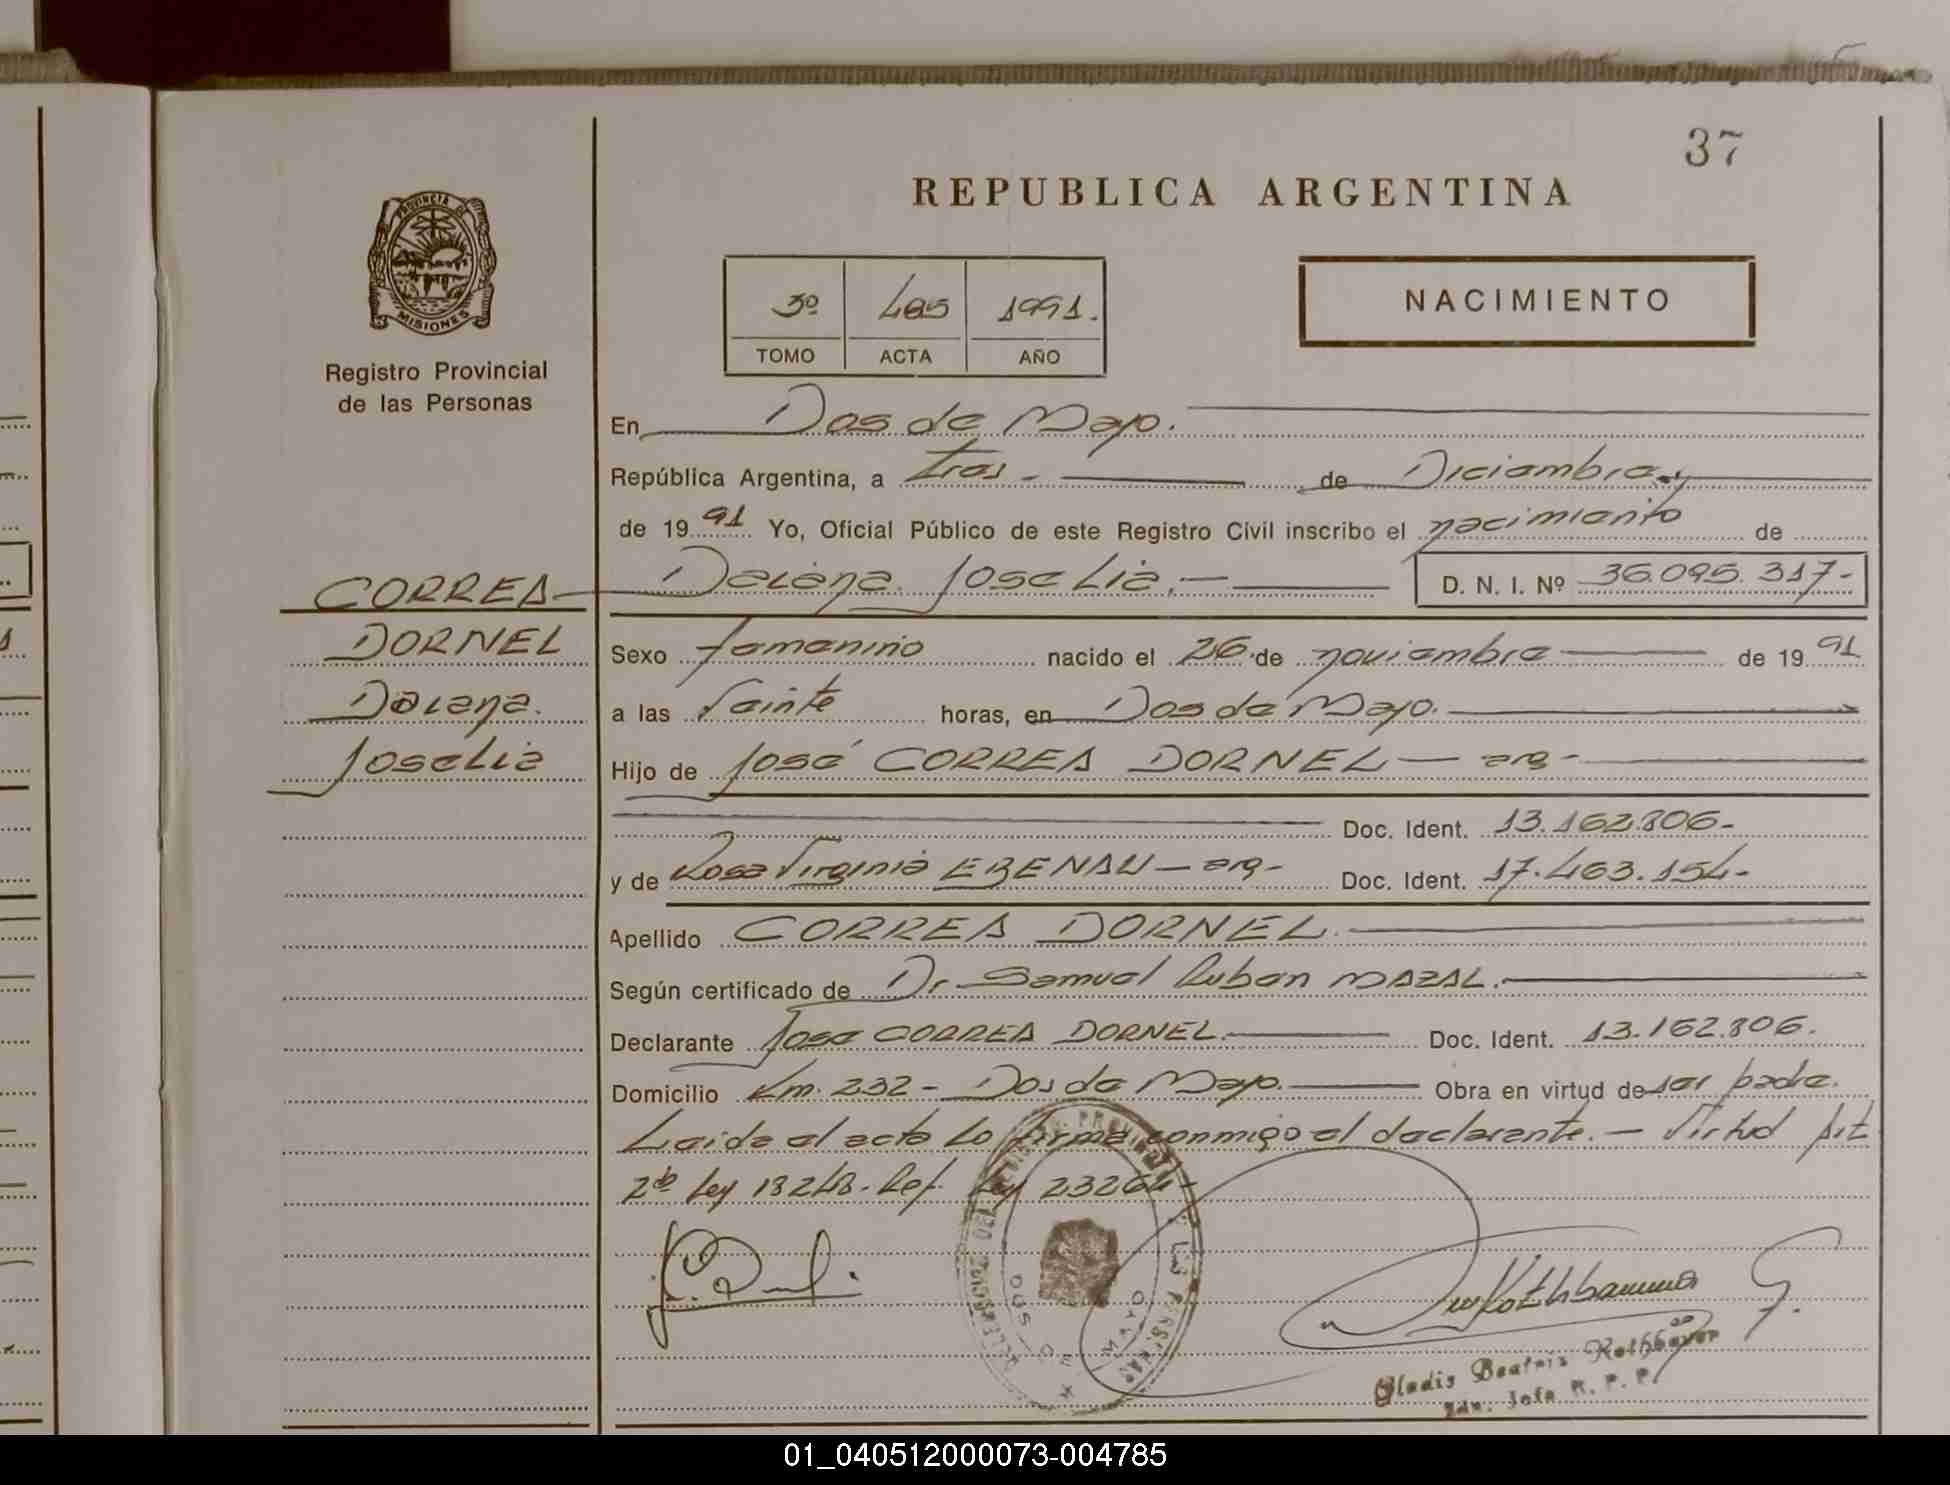 37
REPUBLICA ARGENTINA
PROVINCIA DE
MISIONES
Registro Provincial
de las Personas
3º 485 1991.
TOMO ACTA AÑO
NACIMIENTO
En Dos de Mayo.
República Argentina, a tres.- de Diciembre
de 19 91 Yo, Oficial Público de este Registro Civil inscribo el nacimiento de
CORREA Daiana Joselia.- D. N. I. Nº 36.095.317-
DORNEL
Daiana
Joselia
Sexo femenino nacido el 26 de noviembre de 19 91
a las veinte horas, en Dos de Mayo.
Hijo de José CORREA DORNEL - arg -
Doc. Ident. 13.162.806-
y de Rosa Virginia EBENAU - arg- Doc. Ident. 17.463.154-
Apellido CORREA DORNEL.
Según certificado de Dr. Samuel Ruben MAZAL.
Declarante Jose CORREA DORNEL. Doc. Ident. 13.162.806.
Domicilio Km. 232 - Dos de Mayo. Obra en virtud de ser padre.
Leida el acta lo firma conmigo el declarante.- Virtud Art
2do Ley 18248. Ref. Ley 23264-
DOS DE MAYO
Gladis Beatriz Rothbauer
Jefa R. P. P.
01_040512000073-004785